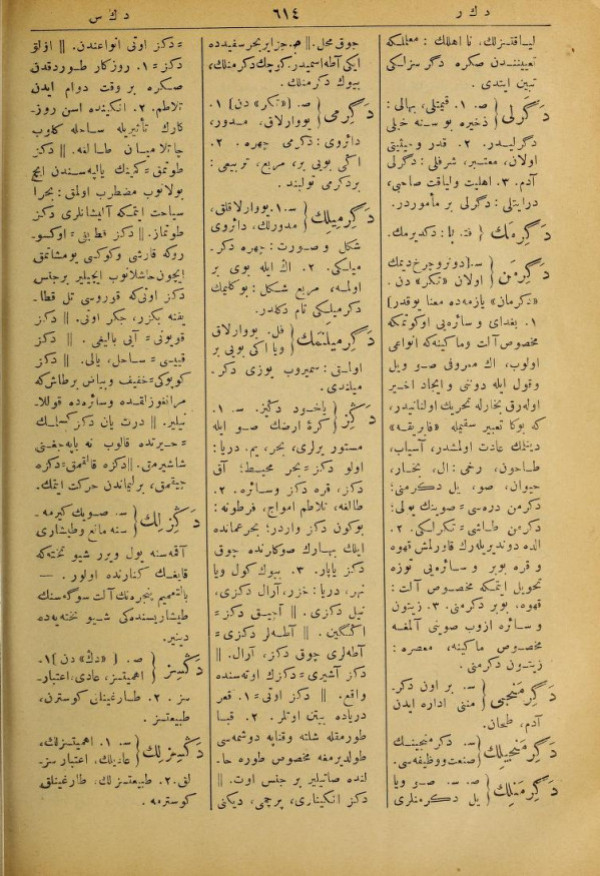 د ك ر
٦١٤
د ك س
لياقتسزلك، نا اهلك : معلملكه
تعييننـدن صكره دگر سزلكی
تبين ايتدی .
دَگِرلی ص. ۱. قيمتلی، بهالی :
ذخيره بو سنه خيلی
دگرليدر. ۲. قدر و حيثيتی
اولان، معتبر، شرفلی : دگرلی
آدم. ۳. اهليت ولياقت صاحبی،
درايتلی : دگرلی بر مأموردر.
دَگِرمَك فت. با : دكديرمك.
دَگِرمَن س.[دونر و چرخ ديمك
اولان «تكر» دن .
«دكرمان» يازمه‌ده معنا يوقدر]
۱. بغدای و سائره‌یی اوكوتمكه
مخصوص آلت وماكينه‌كه انواعی
اولوب، اك معروفی صو و يل
وقول ايله دونی و ايجاد اخير
اوله‌رق بخارله تحريك اولنانيدر،
كه بوكا تعبير سقيمله «فابريقه»
دينلمك عادت اولمشدر، آسياب،
طاحون، رحی : ال، بخـار،
حيوان، صو، يل دكرمنی؛
دكرمن دره‌سی = صوينك يولی؛
دكرمن طاشی = تكرلكی. ۲.
الده دونديريله‌رك قاورلمش قهوه
و قره بوبر و سائره‌یی توزه
تحويل ايتمكه مخصوص آلت :
قهوه، بوبر دكرمنی. ۳. زيتون
و سائره ازوب صوينی آلمغه
مخصوص ماكينه، معصره :
زيتـون دكرمنی .
دَگِرمَنجِی س. بر اون دكر-
منی اداره ايدن
آدم، طحان.
دَگِرمَنجِيلِك س. دكرمنجينك
صنعت ووظيفه‌سی.
دَگِرمَنلِك ص. س. صو ويا
يل دكرمنلری
چوق محل. || ص. جزاير بحر سفيدده
ايكی آطه اسميدر : كوچك دكرمنلك،
بيوك دكرمنلك.
دَگِرمی ص. [«تكر» دن] ۱.
يووارلاق، مدور،
دائروی : دكرمی چهره . ۲.
اكی بوبی بر، مربع، تربيعی :
بردكرمی تولبند .
دَگِرميلِك س.۱. يووارلاقلق،
مدورلك، دائروی
شكل و صورت : چهره دكر-
ميلكی. ۲. اك ايله بوی بر
اولمه، مربع شكل : بوكاتمك
دكرميلكی تام دكلدر.
دَگِرميلَنمَك فل. يووارلاق
ويا اكی بوبی بر
اولمق : سميروب يوزی دكر-
ميلندی .
دَڭِز ياخود دڭيز. س. ۱.
كرۀ ارضك صو ايله
مستور يرلری، بحر، يم. دريا :
اولو دكز = بحر محيط؛ آق
دكز، قره دكز وسائره. ۲.
طالغه، تلاطم امواج، فرطونه :
بوكون دكز واردر؛ بحرعمانده
ايلك بهارك صوكلرنده چوق
دكز ياپار. ۳. بيوك كول ويا
نهر، دريا : خزر، آرال دكزی،
نيل دكزی. || آچيق دكز =
انكين . || آطه‌لر دكزی =
آطه‌لری چوق دكز، آرال. ||
دكز آشيری = دكزك اوته‌سنده
واقع. || دكز اوتی = ۱. قعر
درياده بيتن اوتلر. ۲. قبا
طورمقله شلته وقناپه دوشمه‌سی
طولديرمغه مخصوص طوره حا-
لنده صاتيلير بر جنس اوت. ||
دكز انكيناری، پرچمی، ديكنی
= دكز اوتی انواعندن. || اوزلق
دكز = ۱. روزكار طـوردقدن
صكره بر وقت دوام ايدن
تلاطم. ۲. انكينده اسن روز-
كارك تأثيريله ساحله كلوب
چاتلاميـان طـالغه. || دكز
طوتمق = كمينك ياليه‌سندن ايچ
بولانوب مضطرب اولمق : بحرا
سياحت ايتمكه آليشانلری دكز
طوتماز. ||
روكه قارشی وكوكسی يومشاتمق
ايچون حاشلانوب ايچيلير برجنس
دكز اوتی‌كه قوروسی تل قطا-
يفنه بكزر، جكر اوتی. || دكز
قويونی = آيی باليغی . || دكز
قيیسی = سـاحل، يالی. || دكز
كوپوكی = خفيف وبياض برطاش‌كه
مرانغوزلقده وسائره‌ده قوللا-
نيلير. || درت يان دكز كسلمك
= حيرتده قالوب نه ياپه‌جغنی
شاشيرمق. || دكزه قالقمق = دكزه
چيقمق، برليماندن حركت ايتمك.
دَڭِزلِك س. صـويك كيرمه-
سنه مانع وطيشاری
آقمه‌سنه يول ويرر شيو تخته‌كه
قايغك كنارنده اولور. —
بالتعميم پنجره‌نك آلت سوكه‌سنك
طيشاريسنده‌كی شـيو تخته‌يه‌ده
دينير.
دَگسِز ص. [ «دك» دن ]۱.
اهميتسز، عادی، اعتبار-
سز . ۲. طـارغينلق كوسترن،
طبيعتسز .
دَگسِزلِك س. ۱. اهميتسزلك،
عاديلك، اعتبار سز-
لق. ۲. طبيعتسزلك، طارغينلق
كوسترمه .